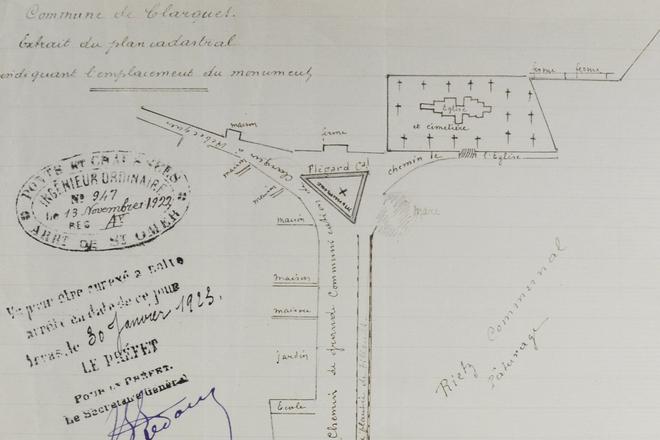 Commune de Clarques.
Extrait du plan cadastral
indiquant l'emplacement du monument
PONTS ET CHAUSSÉES
INGÉNIEUR ORDINAIRE
No 947
le 13 Novembre 1922
REG A4
ARRt DE St OMER
Vu pour être annexé à notre
arrêté en date de ce jour
Arras, le 30 Janvier 1923.
LE PRÉFET
POUR LE PRÉFET.
Le Secrétaire Général
ferme ferme
Eglise
et cimetière
chemin de l'Eglise
maison
ferme
Clarques à
Plegard (a)
monument
maison
maison
mare
maison
maison
jardin
Ecole
Chemin de grande Communication
Rietz Communal
Pâturage